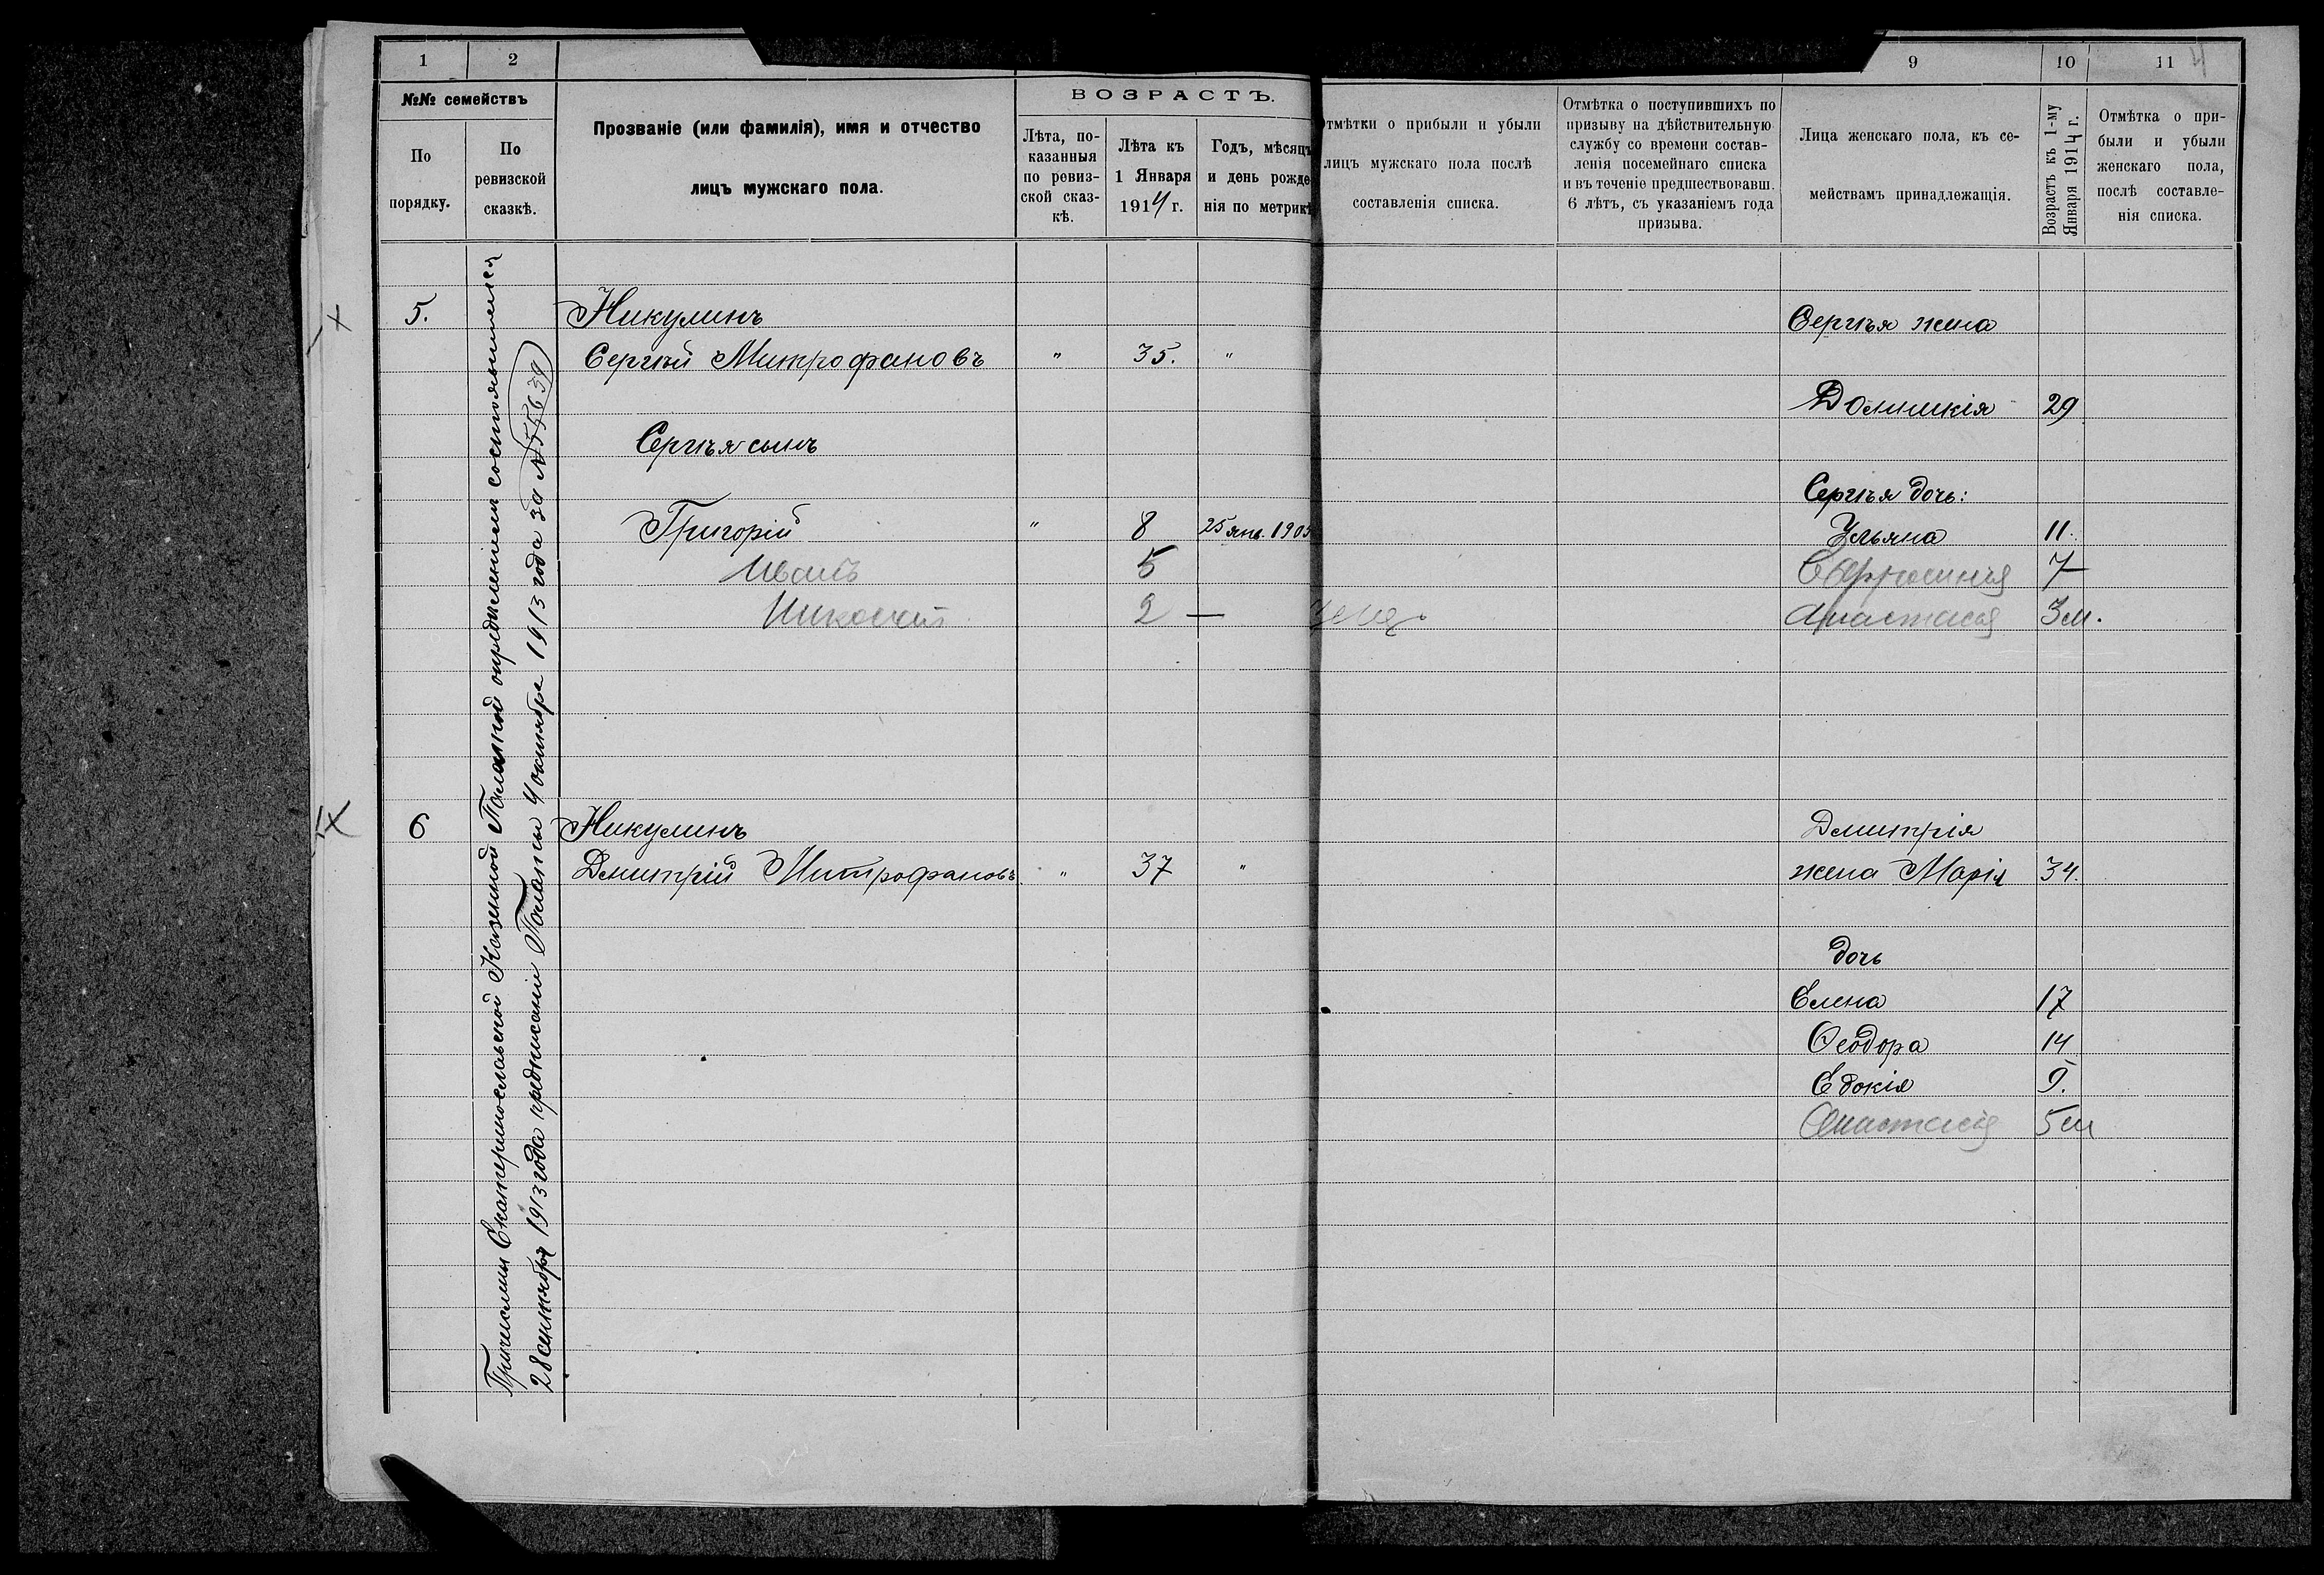 1 2 9 10 11 4
№№ семействъ
По порядку.
По ревизской сказкѣ.
Прозваніе (или фамилія), имя и отчество
лицъ мужскаго пола.
ВОЗРАСТЪ.
Лѣта, по-
казанныя
по ревиз-
ской сказ-
кѣ.
Лѣта къ
1 Января
1914 г.
Годъ, мѣсяцъ
и день рожде
нія по метрикѣ
Отмѣтки о прибыли и убыли
лицъ мужскаго пола послѣ
составленія списка.
Отмѣтка о поступившихъ по
призыву на дѣйствительную
службу со времени состав-
ленія посемейнаго списка
и въ теченіе предшествовавш.
6 лѣтъ, съ указаніемъ года
призыва.
Лица женскаго пола, къ се-
мействамъ принадлежащія.
Возрастъ къ 1-му
Января 1914 г.
Отмѣтка о при-
были и убыли
женскаго пола,
послѣ составле-
нія списка.
Причислены Екатеринославской Казенной Палатой опредѣленіем состоявшемся
28 сентября 1913 года предписаніи Палаты 4 октября 1913 года за № 55639
5. Никулинъ Сергѣя жена
Сергѣй Митрофановъ " 35. "
29
Сергѣя сынъ
Сергѣя дочь:
Григорій " 8 25 янв. 1905 Ульяна 11.
Иванъ 5 Ефросинія 7
Николай 2 — Анастасія 3 м.
6 Никулинъ Дмитрія
Дмитрій Митрофановъ " 37 " жена Марія 34.
дочь
Елена 17
Ѳеодора 14
Евдокія 9.
Анастасія 5 м